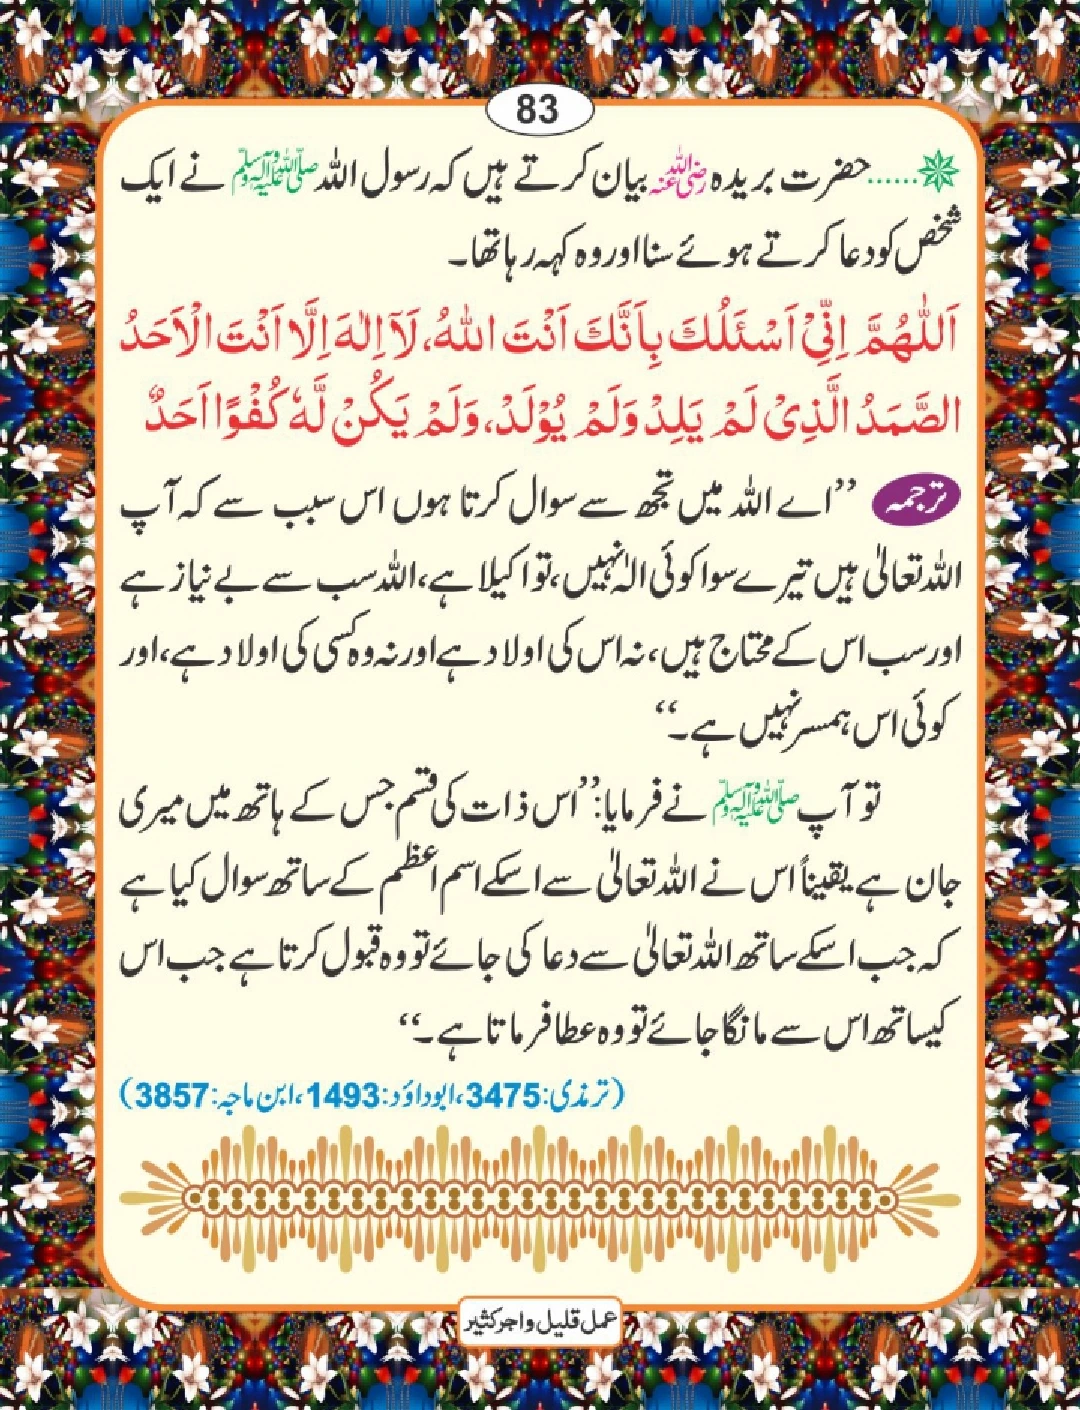 83
......حضرت بریدہ رضی اللہ عنہ بیان کرتے ہیں کہ رسول اللہ صلی اللہ علیہ وسلم نے ایک
شخص کو دعا کرتے ہوئے سنا اور وہ کہہ رہا تھا۔
اَللّٰهُمَّ اِنِّىْ اَسْئَلُكَ بِاَنَّكَ اَنْتَ اللهُ، لَآ اِلٰهَ اِلَّا اَنْتَ الْاَحَدُ
الصَّمَدُ الَّذِىْ لَمْ يَلِدْ وَلَمْ يُوْلَدْ، وَلَمْ يَكُنْ لَّهٗ كُفْوًا اَحَدٌ
ترجمہ ’’اے اللہ میں تجھ سے سوال کرتا ہوں اس سبب سے کہ آپ
اللہ تعالیٰ ہیں تیرے سوا کوئی الٰہ نہیں، تو اکیلا ہے، اللہ سب سے بے نیاز ہے
اور سب اس کے محتاج ہیں، نہ اس کی اولاد ہے اور نہ وہ کسی کی اولاد ہے، اور
کوئی اس ہمسر نہیں ہے۔‘‘
تو آپ صلی اللہ علیہ وسلم نے فرمایا: ’’اس ذات کی قسم جس کے ہاتھ میں میری
جان ہے یقیناً اس نے اللہ تعالیٰ سے اسکے اسم اعظم کے ساتھ سوال کیا ہے
کہ جب اسکے ساتھ اللہ تعالیٰ سے دعا کی جائے تو وہ قبول کرتا ہے جب اس
کیساتھ اس سے مانگا جائے تو وہ عطا فرماتا ہے۔‘‘
(ترمذی: 3475، ابوداؤد: 1493، ابن ماجہ: 3857)
عمل قلیل واجر کثیر